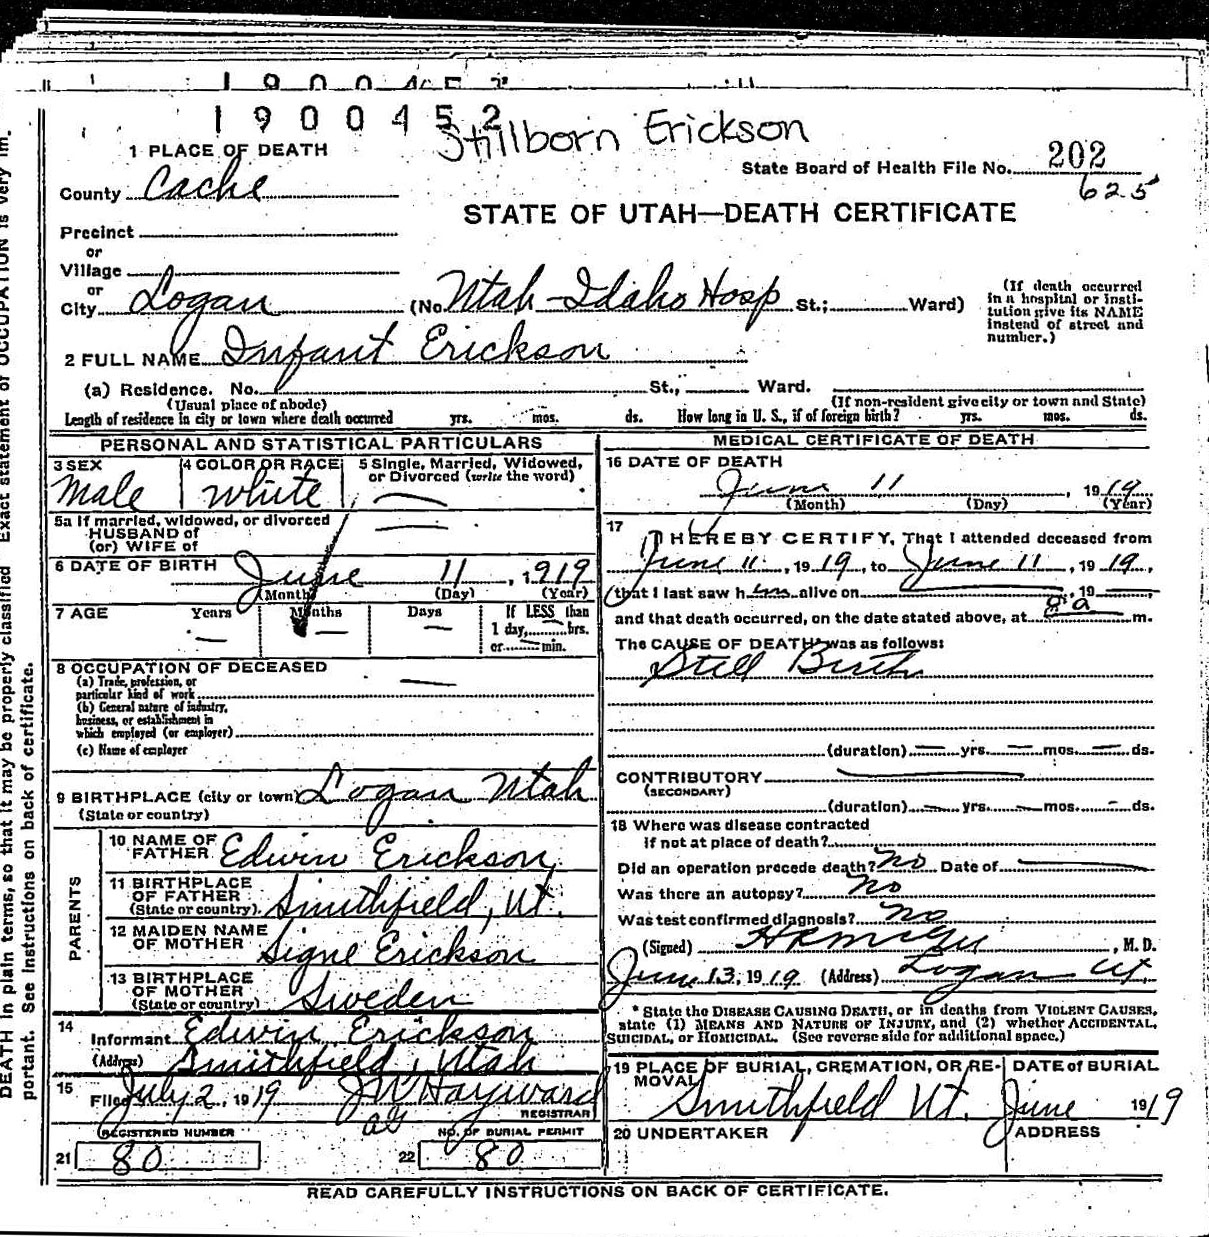 1900452
Stillborn Erickson
1 PLACE OF DEATH
State Board of Health File No. 202
625
County Cache
STATE OF UTAH—DEATH CERTIFICATE
Precinct
or
Village
or
City Logan (No. Utah-Idaho Hosp St.; Ward)
(If death occurred
in a hospital or insti-
tution give its NAME
instead of street and
number.)
2 FULL NAME Infant Erickson
(a) Residence. No. St., Ward.
(Usual place of abode) (If non-resident give city or town and State)
Length of residence in city or town where death occurred yrs. mos. ds. How long in U. S., if of foreign birth? yrs. mos. ds.
PERSONAL AND STATISTICAL PARTICULARS
3 SEX 4 COLOR OR RACE 5 Single, Married, Widowed,
or Divorced (write the word)
Male White —
5a If married, widowed, or divorced
HUSBAND of
(or) WIFE of —
6 DATE OF BIRTH June 11, 1919
(Month) (Day) (Year)
7 AGE Years Months Days If LESS than
— — — 1 day, hrs.
or min.
8 OCCUPATION OF DECEASED
(a) Trade, profession, or
particular kind of work —
(b) General nature of industry,
business, or establishment in
which employed (or employer)
(c) Name of employer
9 BIRTHPLACE (city or town) Logan Utah
(State or country)
PARENTS
10 NAME OF
FATHER Edwin Erickson
11 BIRTHPLACE
OF FATHER
(State or country). Smithfield, Ut.
12 MAIDEN NAME
OF MOTHER Signe Erickson
13 BIRTHPLACE
OF MOTHER
(State or country) Sweden
14
Informant Edwin Erickson
(Address) Smithfield, Utah
15
Filed July 2, 1919 J W Hayward
REGISTRAR
REGISTERED NUMBER NO. OF BURIAL PERMIT
21 80 22 80
MEDICAL CERTIFICATE OF DEATH
16 DATE OF DEATH
June 11, 1919
(Month) (Day) (Year)
17
I HEREBY CERTIFY, That I attended deceased from
June 11, 1919, to June 11, 1919,
(that I last saw him alive on —, 19—,
and that death occurred, on the date stated above, at 8 a m.
The CAUSE OF DEATH* was as follows:
Still Birth
(duration) — yrs. — mos. — ds.
CONTRIBUTORY —
(SECONDARY)
(duration) — yrs. — mos. — ds.
18 Where was disease contracted
if not at place of death?
Did an operation precede death? No Date of —
Was there an autopsy? no
Was test confirmed diagnosis? no
(Signed) , M. D.
June 13, 1919 (Address) Logan Ut.
* State the DISEASE CAUSING DEATH, or in deaths from VIOLENT CAUSES,
state (1) MEANS AND NATURE OF INJURY, and (2) whether ACCIDENTAL,
SUICIDAL, or HOMICIDAL. (See reverse side for additional space.)
19 PLACE OF BURIAL, CREMATION, OR RE-
MOVAL
DATE OF BURIAL
Smithfield Ut. June 1919
20 UNDERTAKER ADDRESS
READ CAREFULLY INSTRUCTIONS ON BACK OF CERTIFICATE.
DEATH in plain terms, so that it may be properly classified. Exact statement of OCCUPATION is very im-
portant. See instructions on back of certificate.